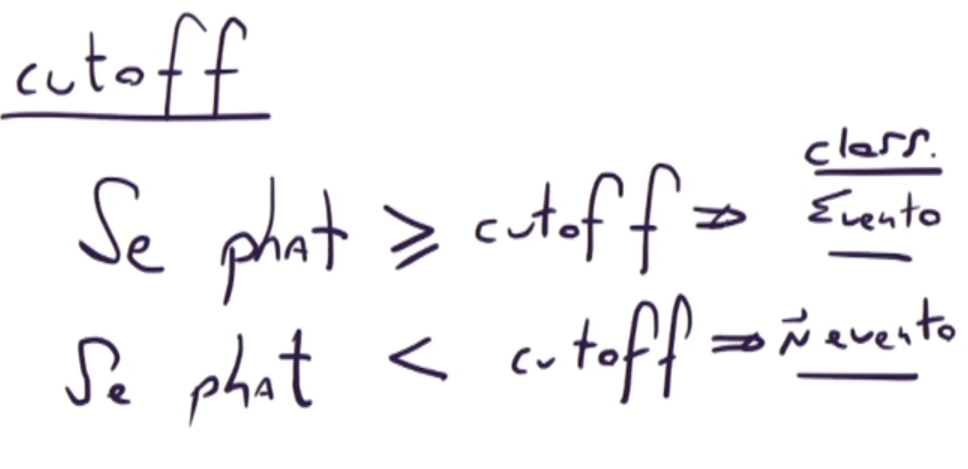 cutoff
class.
Se phat ≥ cutoff ⇒ Evento
Se phat < cutoff ⇒ Ñ evento